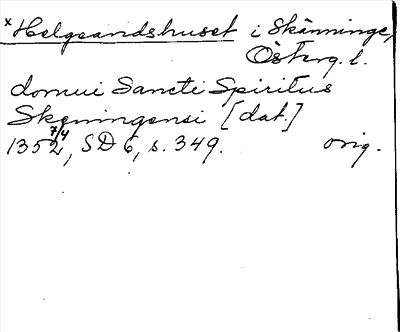 x Helgeandshuset i Skänninge,
Österg. l.
domui Sancti Spiritus
Skeningensi [dat.]
1352 7/4, SD 6, s. 349. orig.